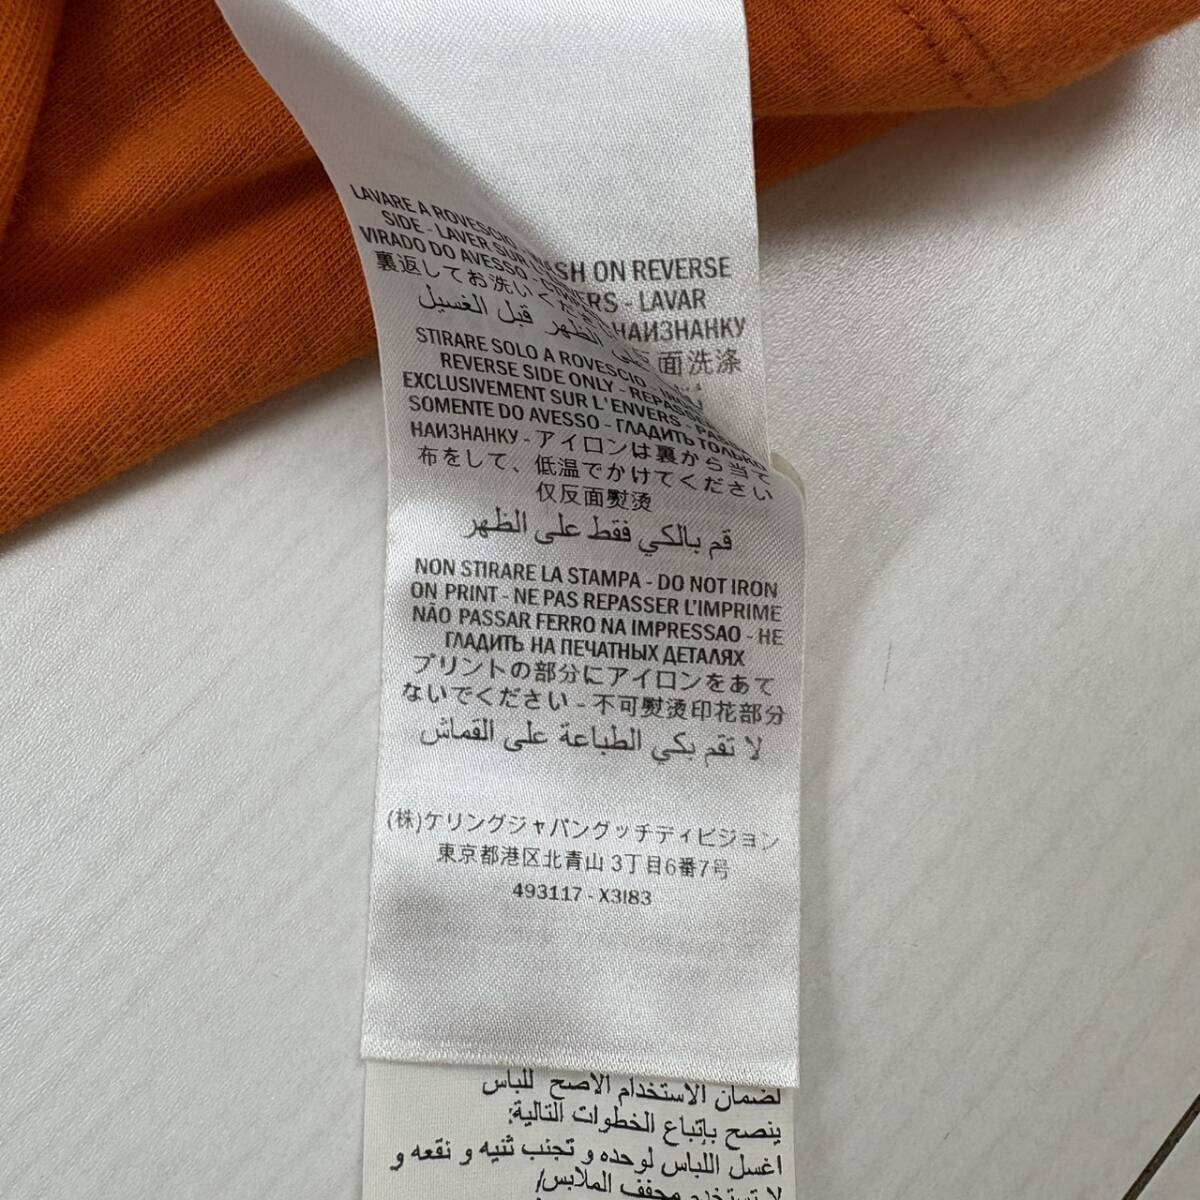 LAVARE A ROVESCIO - WASH ON REVERSE
SIDE - LAVER SUR L'ENVERS - LAVAR
VIRADO DO AVESSO - НАИЗНАНКУ
裏返してお洗いください 反面洗涤
الظهر قبل الغسيل
STIRARE SOLO A ROVESCIO -
REVERSE SIDE ONLY - REPASSER
EXCLUSIVEMENT SUR L'ENVERS -
SOMENTE DO AVESSO - ГЛАДИТЬ ТОЛЬКО
НАИЗНАНКУ - アイロンは裏から当て
布をして、低温でかけてください
仅反面熨烫
قم بالكي فقط على الظهر
NON STIRARE LA STAMPA - DO NOT IRON
ON PRINT - NE PAS REPASSER L'IMPRIME
NÃO PASSAR FERRO NA IMPRESSAO - НЕ
ГЛАДИТЬ НА ПЕЧАТНЫХ ДЕТАЛЯХ
プリントの部分にアイロンをあて
ないでください - 不可熨烫印花部分
لا تقم بكي الطباعة على القماش
(株)ケリングジャパングッチディビジョン
東京都港区北青山 3丁目6番7号
493117 - X3I83
لضمان الاستخدام الأصح للباس
ينصح بإتباع الخطوات التالية:
اغسل اللباس لوحده و تجنب ثنيه و نقعه و
لا تستخدم مجفف الملابس/